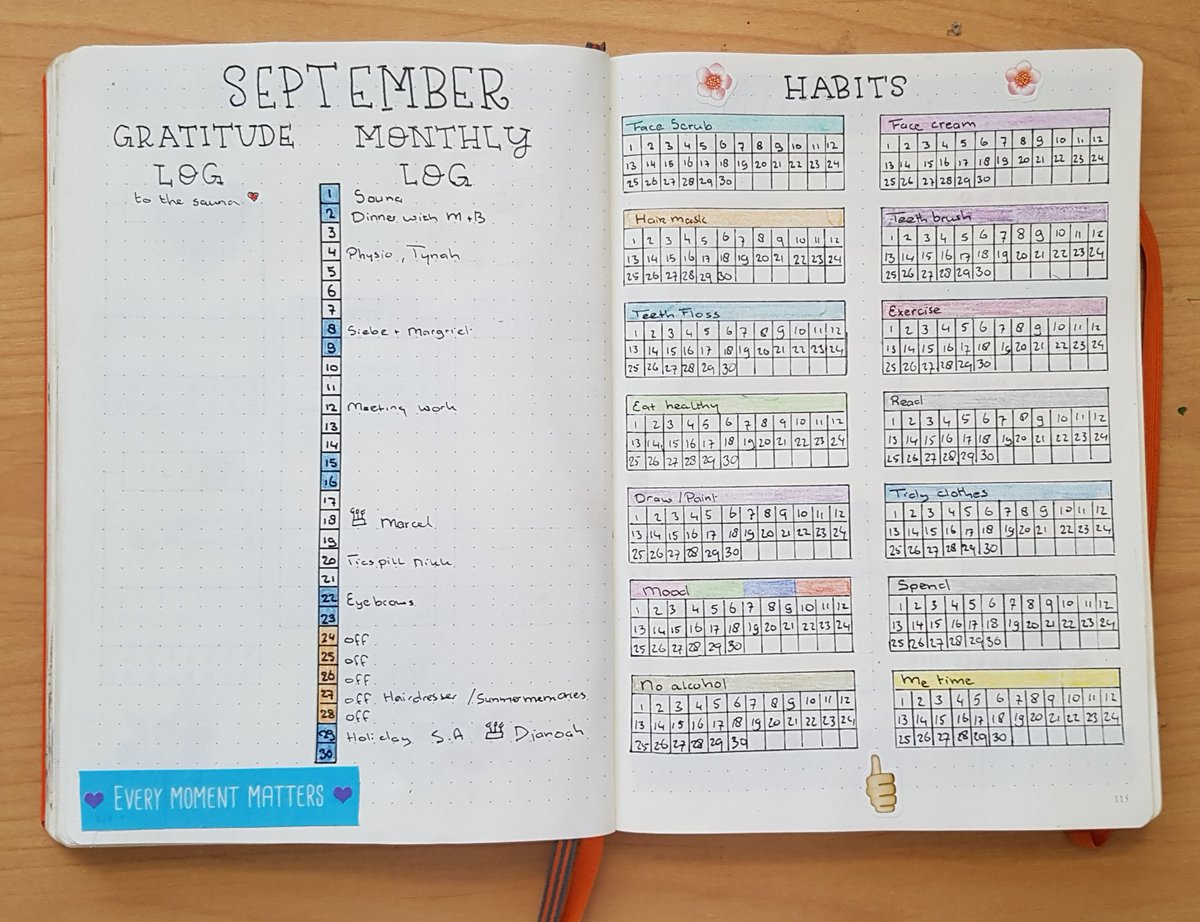 SEPTEMBER
GRATITUDE LOG
to the sauna
MONTHLY LOG
1 Sauna
2 Dinner with M+B
3
4 Physio, Tynah
5
6
7
8 Siebe + Margriet
9
10
11
12 Meeting work
13
14
15
16
17
18 Marcel
19
20
21
22 Eyebrows
23
24 off
25 off
26 off
27 off Hairdresser / Summermemories
28 off
29 Holiday S.A Djanoah
30
EVERY MOMENT MATTERS
HABITS
Face Scrub
1 2 3 4 5 6 7 8 9 10 11 12
13 14 15 16 17 18 19 20 21 22 23 24
25 26 27 28 29 30
Face cream
1 2 3 4 5 6 7 8 9 10 11 12
13 14 15 16 17 18 19 20 21 22 23 24
25 26 27 28 29 30
Hair mask
1 2 3 4 5 6 7 8 9 10 11 12
13 14 15 16 17 18 19 20 21 22 23 24
25 26 27 28 29 30
Teeth brush
1 2 3 4 5 6 7 8 9 10 11 12
13 14 15 16 17 18 19 20 21 22 23 24
25 26 27 28 29 30
Teeth Floss
1 2 3 4 5 6 7 8 9 10 11 12
13 14 15 16 17 18 19 20 21 22 23 24
25 26 27 28 29 30
Exercise
1 2 3 4 5 6 7 8 9 10 11 12
13 14 15 16 17 18 19 20 21 22 23 24
25 26 27 28 29 30
Eat healthy
1 2 3 4 5 6 7 8 9 10 11 12
13 14 15 16 17 18 19 20 21 22 23 24
25 26 27 28 29 30
Read
1 2 3 4 5 6 7 8 9 10 11 12
13 14 15 16 17 18 19 20 21 22 23 24
25 26 27 28 29 30
Draw / Paint
1 2 3 4 5 6 7 8 9 10 11 12
13 14 15 16 17 18 19 20 21 22 23 24
25 26 27 28 29 30
Tidy clothes
1 2 3 4 5 6 7 8 9 10 11 12
13 14 15 16 17 18 19 20 21 22 23 24
25 26 27 28 29 30
Mood
1 2 3 4 5 6 7 8 9 10 11 12
13 14 15 16 17 18 19 20 21 22 23 24
25 26 27 28 29 30
Spend
1 2 3 4 5 6 7 8 9 10 11 12
13 14 15 16 17 18 19 20 21 22 23 24
25 26 27 28 29 30
No alcohol
1 2 3 4 5 6 7 8 9 10 11 12
13 14 15 16 17 18 19 20 21 22 23 24
25 26 27 28 29 30
Me time
1 2 3 4 5 6 7 8 9 10 11 12
13 14 15 16 17 18 19 20 21 22 23 24
25 26 27 28 29 30
115